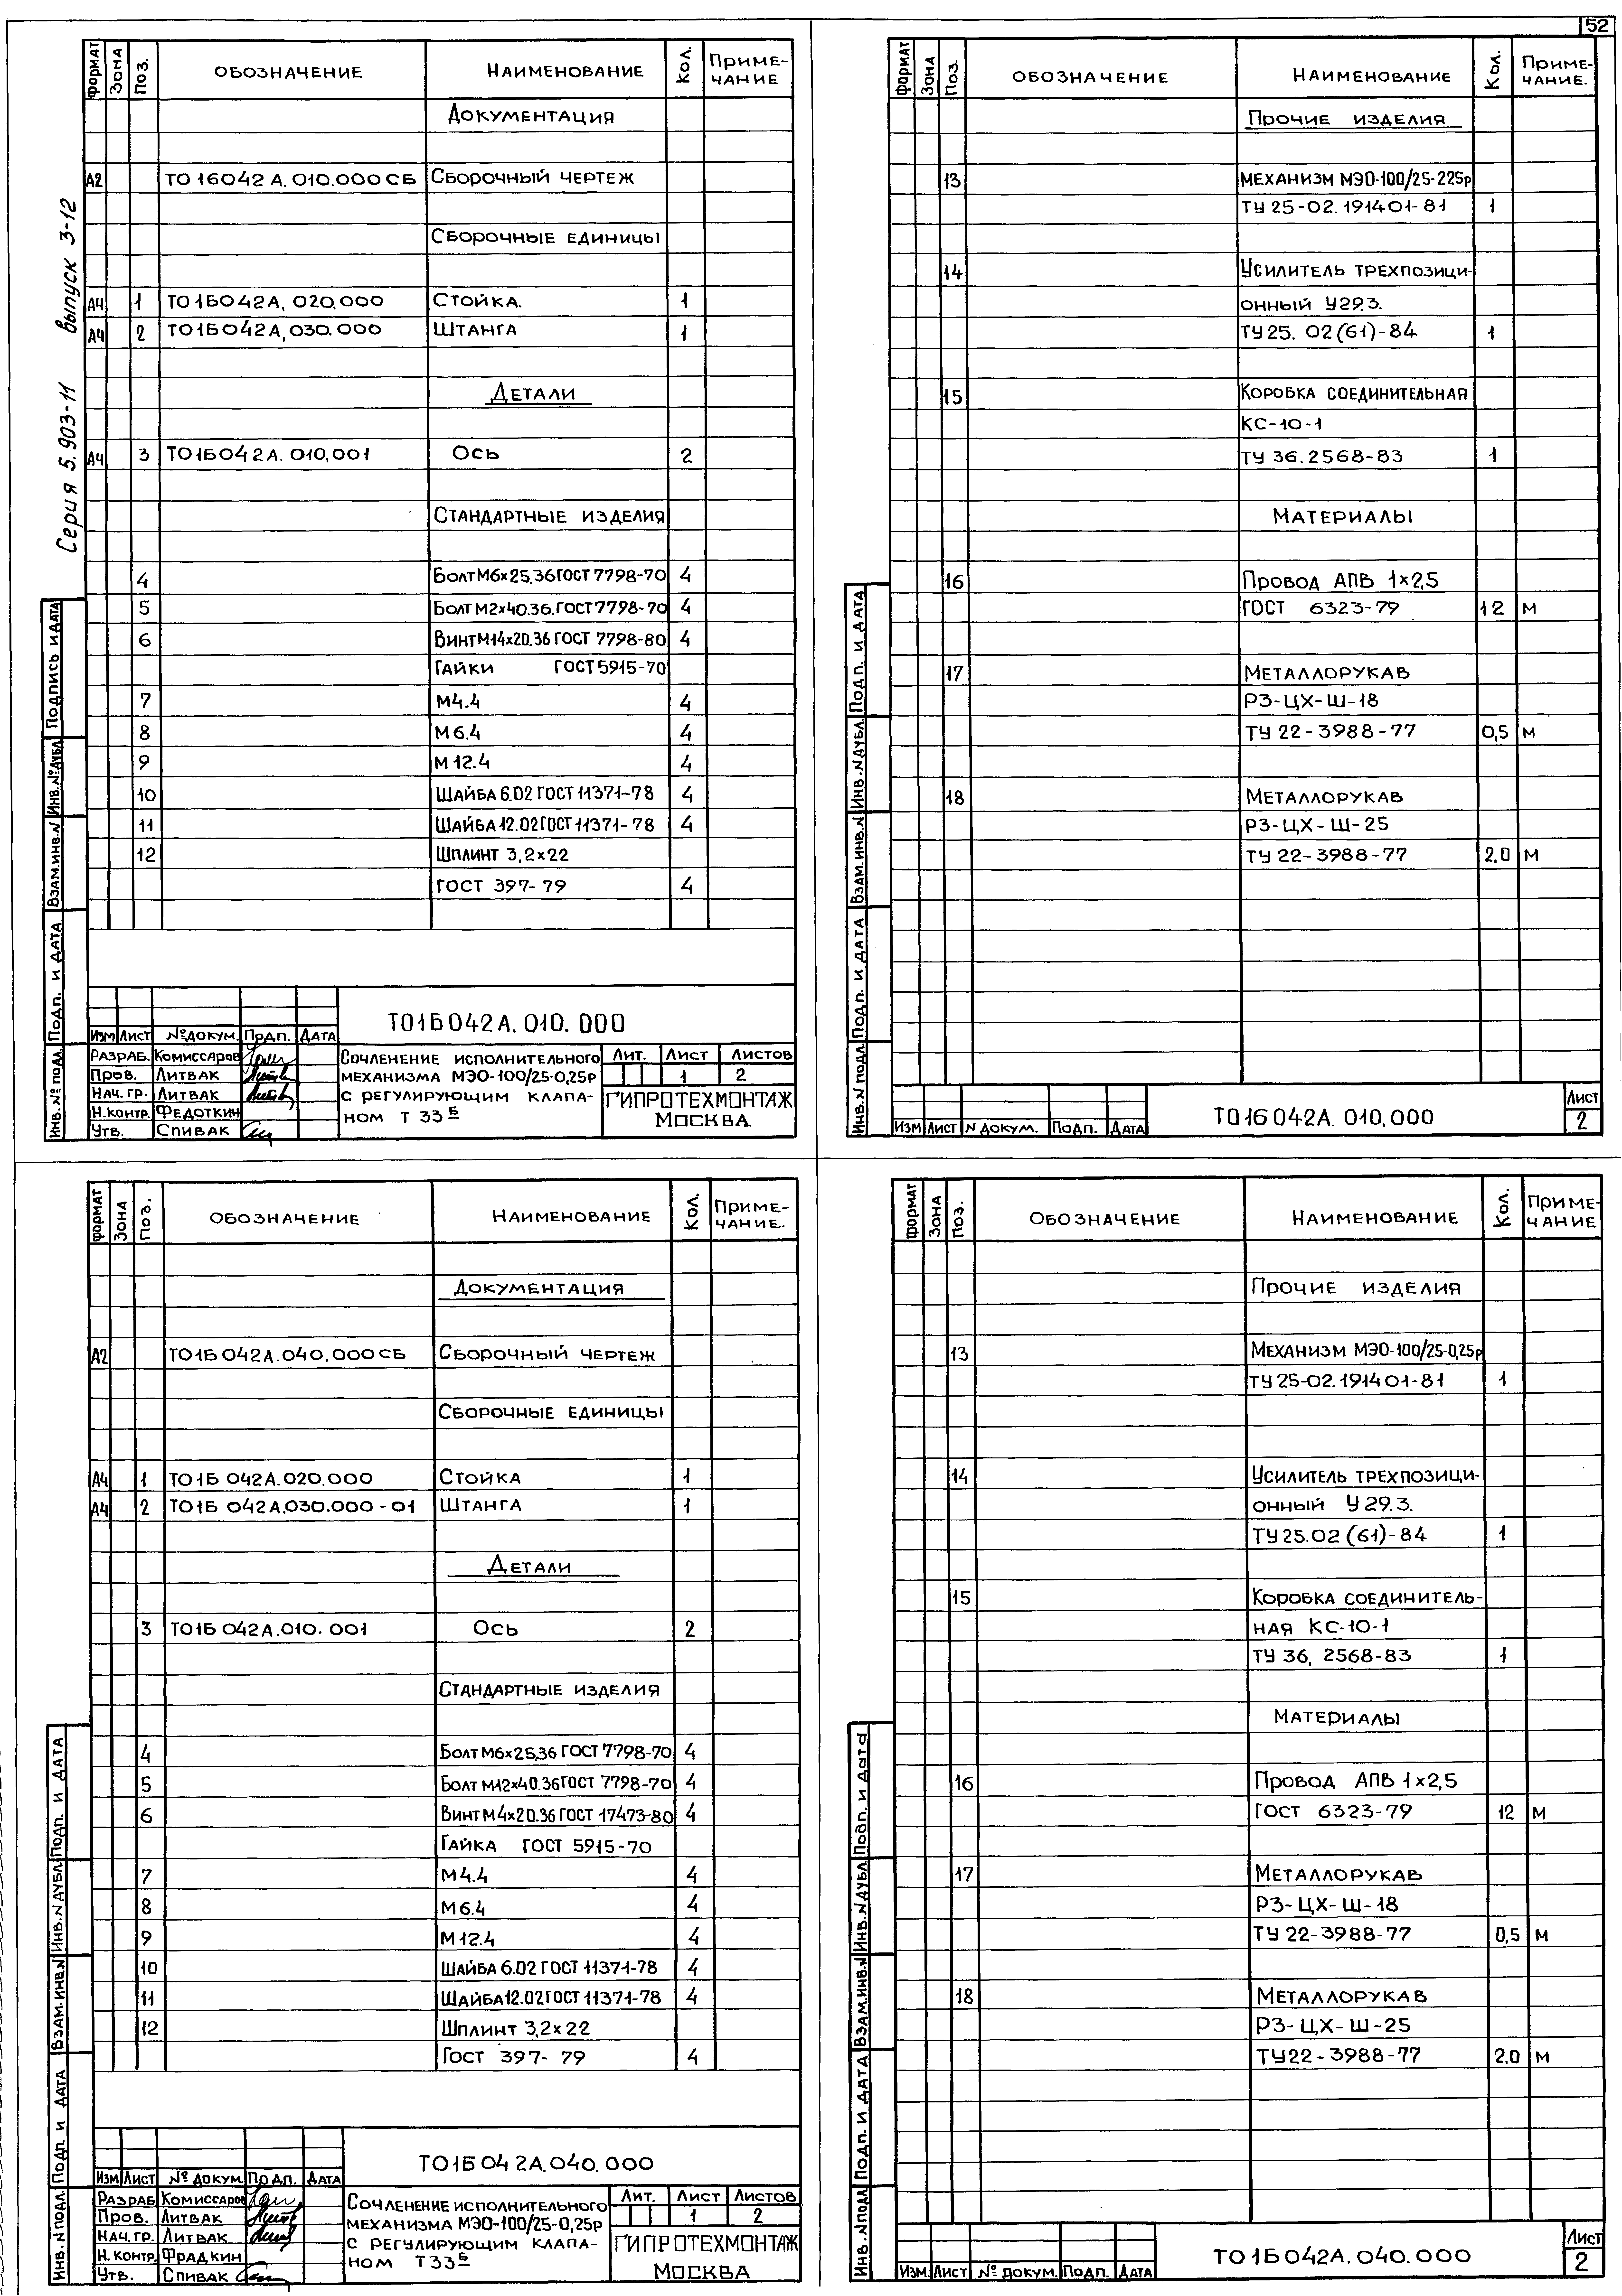 52
Серия 5.903-11 выпуск 3-12
Формат Зона Поз. Обозначение Наименование Кол. Приме-
чание
Документация
А2 ТО16042А.010.000СБ Сборочный чертеж
Сборочные единицы
А4 1 ТО1Б042А,020.000 Стойка. 1
А4 2 ТО1Б042А,030.000 Штанга 1
Детали
А4 3 ТО1Б042А.010,001 Ось 2
Стандартные изделия
4 Болт М6х25,36 ГОСТ 7798-70 4
5 Болт М2х40.36. ГОСТ 7798-70 4
6 Винт М14х20.36 ГОСТ 7798-80 4
Гайки ГОСТ 5915-70
7 М4.4 4
8 М6.4 4
9 М12.4 4
10 Шайба 6.02 ГОСТ 11371-78 4
11 Шайба 12.02 ГОСТ 11371-78 4
12 Шплинт 3,2х22
ГОСТ 397-79 4
Инв.№ подл. Подп. и дата Взам.инв.№ Инв.№ дубл. Подпись и дата
ТО1Б042А.010.000
Изм Лист № докум. Подп. Дата
Разраб. Комиссаров
Пров. Литвак
Нач.гр. Литвак
Н.контр. Федоткин
Утв. Спивак
Сочленение исполнительного
механизма МЭО-100/25-0,25р
с регулирующим клапа-
ном Т 33Б
Лит. Лист Листов
1 2
ГИПРОТЕХМОНТАЖ
Москва
Формат Зона Поз. Обозначение Наименование Кол. Приме-
чание.
Прочие изделия
13 Механизм МЭО-100/25-225р
ТУ 25-02.191401-81 1
14 Усилитель трехпозици-
онный У29.3.
ТУ 25.02(61)-84 1
15 Коробка соединительная
КС-10-1
ТУ 36.2568-83 1
Материалы
16 Провод АПВ 1х2,5
ГОСТ 6323-79 12 м
17 Металлорукав
РЗ-ЦХ-Ш-18
ТУ 22-3988-77 0,5 м
18 Металлорукав
РЗ-ЦХ-Ш-25
ТУ 22-3988-77 2,0 м
Инв.№ подл. Подп. и дата Взам.инв.№ Инв.№ дубл. Подп. и дата
Изм Лист № докум. Подп. Дата
ТО16042А.010,000
Лист
2
Формат Зона Поз. Обозначение Наименование Кол. Приме-
чание.
Документация
А2 ТО1Б042А.040.000СБ Сборочный чертеж
Сборочные единицы
А4 1 ТО1Б 042А.020.000 Стойка 1
А4 2 ТО1Б 042А.030.000-01 Штанга 1
Детали
3 ТО1Б 042А.010.001 Ось 2
Стандартные изделия
4 Болт М6х25,36 ГОСТ 7798-70 4
5 Болт М12х40.36 ГОСТ 7798-70 4
6 Винт М4х20.36 ГОСТ 17473-80 4
Гайка ГОСТ 5915-70
7 М4.4 4
8 М6.4 4
9 М12.4 4
10 Шайба 6.02 ГОСТ 11371-78 4
11 Шайба 12.02 ГОСТ 11371-78 4
12 Шплинт 3,2х22
Гост 397-79 4
Инв.№ подл. Подп. и дата Взам.инв.№ Инв.№ дубл. Подп. и дата
ТО1Б042А.040.000
Изм Лист № докум. Подп. Дата
Разраб Комиссаров
Пров. Литвак
Нач.гр. Литвак
Н.контр. Фрадкин
Утв. Спивак
Сочленение исполнительного
механизма МЭО-100/25-0,25р
с регулирующим клапа-
ном Т33Б
Лит. Лист Листов
1 2
ГИПРОТЕХМОНТАЖ
Москва
Формат Зона Поз. Обозначение Наименование Кол. Приме-
чание
Прочие изделия
13 Механизм МЭО-100/25-0,25р
ТУ 25-02.191401-81 1
14 Усилитель трехпозици-
онный У29.3.
ТУ 25.02(61)-84 1
15 Коробка соединитель-
ная КС-10-1
ТУ 36,2568-83 1
Материалы
16 Провод АПВ 1х2,5
ГОСТ 6323-79 12 м
17 Металлорукав
РЗ-ЦХ-Ш-18
ТУ 22-3988-77 0,5 м
18 Металлорукав
РЗ-ЦХ-Ш-25
ТУ22-3988-77 2.0 м
Инв.№ подл. Подп. и дата Взам.инв.№ Инв.№ дубл. Подп. и дата
Изм. Лист № докум. Подп. Дата
ТО1Б042А.040.000
Лист
2